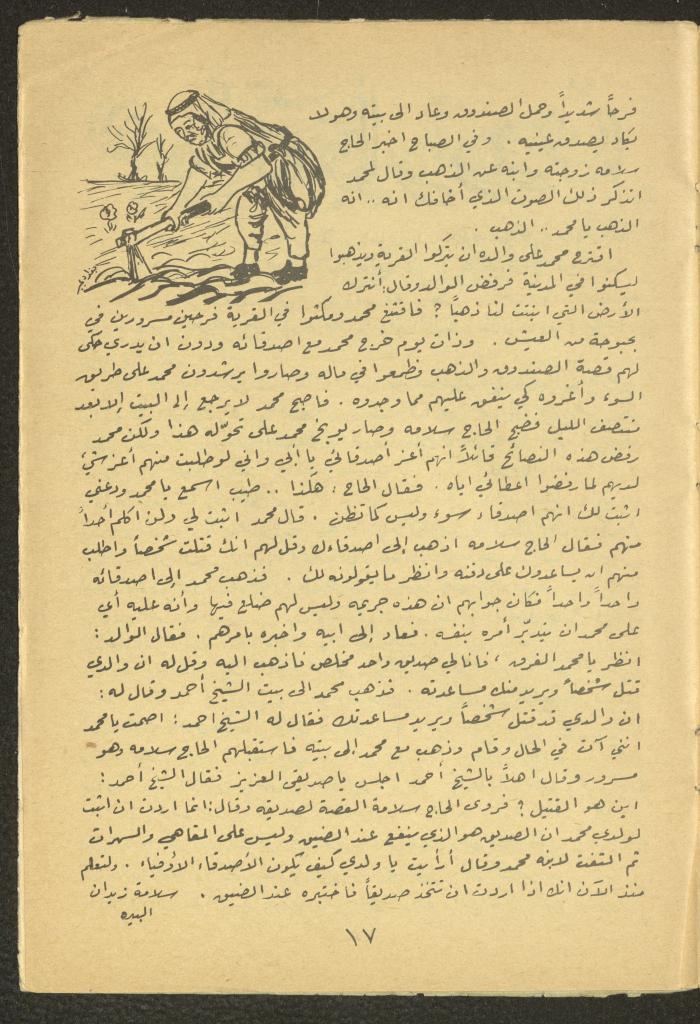 فرحاً شديداً وحمل الصندوق وعاد الى بيته وهو لا
يكاد يصدق عينيه . وفي الصباح اخبر الحاج
سلامه زوجته وابنه عن الذهب وقال لمحمد
اتذكر ذلك الصوت الذي أخافك انه .. انه
الذهب يا محمد .. الذهب .
اقترح محمد على والده ان يتركوا القرية ويذهبوا
ليسكنوا في المدينة فرفض الوالد وقال : أنترك
الأرض التي انبتت لنا ذهباً ؟ فاقتنع محمد ومكثوا في القرية فرحين مسرورين في
بحبوحة من العيش . وذات يوم خرج محمد مع اصدقائه ودون ان يدري حكى
لهم قصة الصندوق والذهب فطمعوا في ماله وصاروا يرشدون محمد على طريق
السوء وأغروه كي ينفق عليهم مما وجدوه . فاصبح محمد لا يرجع إلى البيت إلا بعد
منتصف الليل فضج الحاج سلامه وصار يوبخ محمد على تحوّله هذا ولكن محمد
رفض هذه النصائح قائلاً انهم أعز أصدقائي يا أبي واني لو طلبت منهم أعز شيء
لديهم لما رفضوا اعطائي اياه . فقال الحاج : هكذا .. طيب اسمع يا محمد ودعني
اثبت لك انهم اصدقاء سوء وليس كما تظن . قال محمد اثبت لي ولن اكلم أحداً
منهم فقال الحاج سلامه اذهب إلى اصدقاءك وقل لهم انك قتلت شخصاً واطلب
منهم ان يساعدوك على دفنه وانظر ما يقولونه لك . فذهب محمد إلى اصدقائه
واحداً واحداً فكان جوابهم ان هذه جريمه وليس لهم ضلع فيها وأنه عليه أي
على محمد ان يتدبّر أمره بنفسه . فعاد إلى ابيه واخبره بامرهم . فقال الوالد :
انظر يا محمد الفرق ، فانا لي صديق واحد مخلص فاذهب اليه وقل له ان والدي
قتل شخصاً ويريد منك مساعدته . فذهب محمد الى بيت الشيخ أحمد وقال له :
ان والدي قد قتل شخصاً ويريد مساعدتك فقال له الشيخ احمد : اصمت يا محمد
انني آت في الحال وقام وذهب مع محمد إلى بيته فاستقبلهم الحاج سلامه وهو
مسرور وقال اهلاً بالشيخ أحمد اجلس يا صديقي العزيز فقال الشيخ أحمد :
اين هو القتيل ؟ فروى الحاج سلامة القصة لصديقه وقال : انما اردت ان اثبت
لولدي محمد ان الصديق هو الذي ينفع عند الضيق وليس على المقاهي والسهرات
ثم التفت لابنه محمد وقال أرأيت يا ولدي كيف يكون الأصدقاء الأوفياء . ولتعلم
منذ الآن انك اذا اردت ان تتخذ صديقاً فاختبره عند الضيق . سلامة زيدان
البيره
١٧